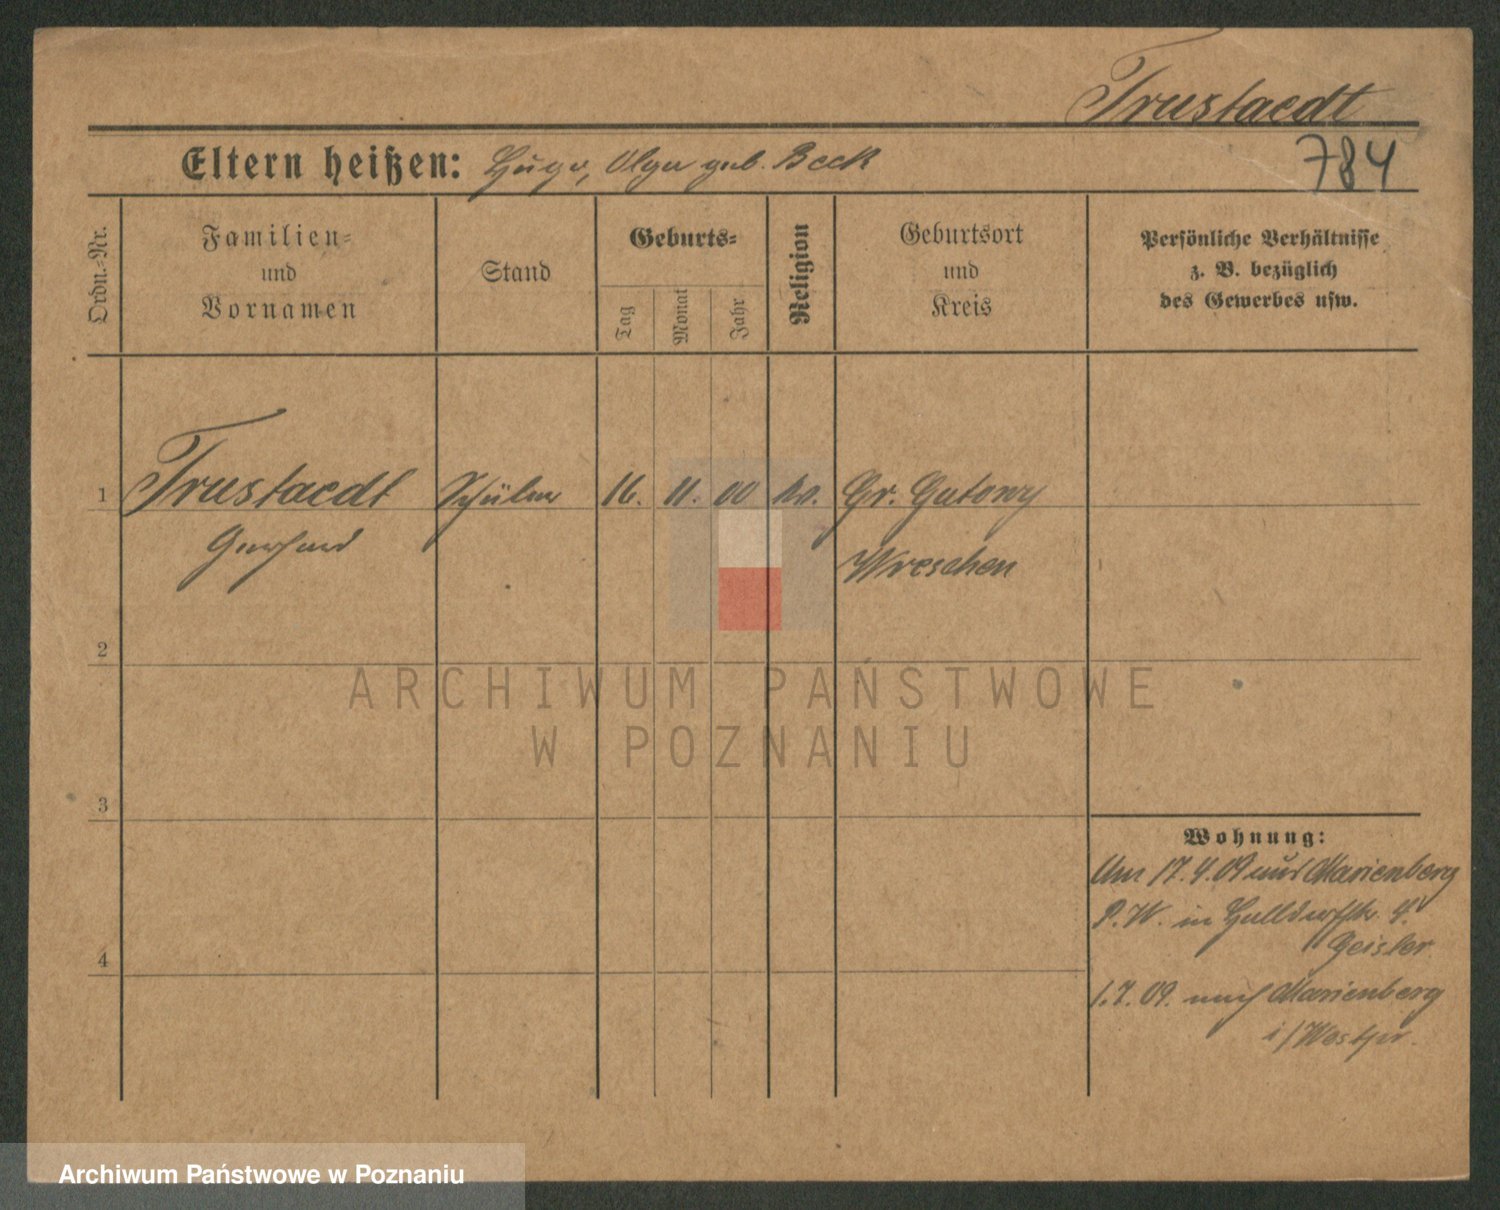 Trustaedt
784
Eltern heißen: Hugo, Olga geb. Beck
Ordn.-Nr.
Familien-
und
Vornamen
Stand
Geburts-
Tag
Monat
Jahr
Religion
Geburtsort
und
Kreis
Persönliche Verhältnisse
z. B. bezüglich
des Gewerbes usw.
1 Trustaedt Schüler 16. 11. 00 ev. Gr. Gutowy
Gerhard Wreschen
2
3
4
Wohnung:
Am 17.4.09 aus Marienberg
P. W. in 4.
Geisler
1.7.09. nach Marienberg
i/Westpr.
ARCHIWUM PAŃSTWOWE
W POZNANIU
Archiwum Państwowe w Poznaniu